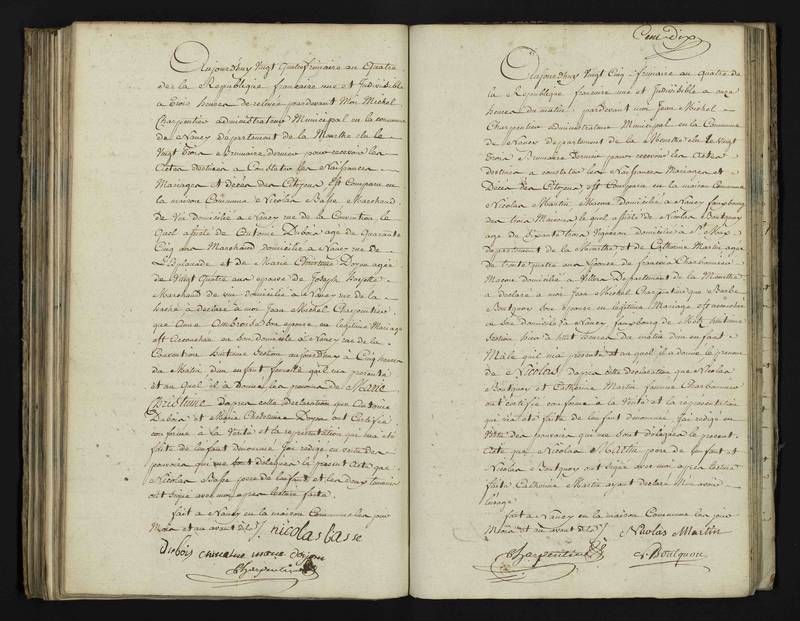 Aujourd'huy Vingt quatre frimaire an Quatre
de la Republique francaise une et Indivisible
a Trois heures de relevée pardevant Moi Michel
Charpentier administrateur Municipal en la commune
de Nancy departement de la Meurthe elu le
Vingt Trois Brumaire dernier pour recevoir les
Actes destinés a Constater les Naissances
Mariages et décès des Citoyens est Comparu en
la maison Commune Nicolas Basse Marchand
de Vin domicilié a Nancy rue de la Convention le
quel assisté de Antoine Dubois agé de Quarante
Cinq ans Marchand domicilié a Nancy rue de
L'Esplanade et de Marie Christine Doyen agée
de Vingt quatre ans epouse de Joseph
Marchand de vin domicilié a Nancy rue de la
hache a déclaré a moi Jean Michel Charpentier
que Anne Ambroise son epouse en legitime Mariage
est accouchée en son domicile a Nancy rue de la
Convention huitieme Section aujourd'huy a Cinq heures
du Matin d'un enfant femelle qu'il m'a presenté
et au quel il a donné les prenoms de Marie
Christine dapres cette declaration que Antoine
Dubois et Marie Christine Doyen ont Certifié
conforme a la Verité et la representation qui m'a été
faite de l'enfant denommé J'ai redigé en vertu des
pouvoirs qui me sont délégués le présent acte que
Nicolas Basse pere de l'enfant et les deux temoins
ont signé avec moi apres lecture faite.
fait a Nancy en la maison Commune les jour
Mois et an avant dits
nicolas basse
Dubois christine marie doyen
Charpentier
Cent dix
Aujourd'huy Vingt Cinq frimaire an quatre de
la Republique francaise une et Indivisible a onze
heures du matin pardevant moi Jean Michel
Charpentier administrateur Municipal en la Commune
de Nancy departement de la Meurthe elu le Vingt
Trois Brumaire dernier pour recevoir les Actes
destinés a constater les Naissances Mariages et
Décès des Citoyens, est Comparu en la maison Commune
Nicolas Martin Macon domicilié a Nancy fauxbourg
des trois Maisons le quel assisté de Nicolas Boutquoy
agé de trois Vigneron domicilié a St Max
Departement de la Meurthe et de Catherine Martin agée
de trente quatre ans Epouse de francois Charbonnier
Macon domicilié a Departement de la Meurthe
a déclaré a moi Jean Michel Charpentier que Barbe
Boutquoy son épouse en légitime Mariage est accouchée
en son domicile a Nancy fauxbourg de Metz huitieme
Section hier a huit heures du matin d'un enfant
Mâle qu'il m'a présenté et au quel il a donné le prenom
de Nicolas dapres cette declaration que Nicolas
Boutquoy et Catherine Martin femme Charbonnier
ont certifié conforme a la Verité et la représentation
qui m'a été faite de l'enfant denommé J'ai redigé en
Vertu des pouvoirs qui me sont délégués le present
acte que Nicolas Martin pere de l'enfant et
Nicolas Boutquoy ont signé avec moi apres lecture
faite Catherine Martin ayant declaré n'en avoir
l'usage
fait a Nancy en la maison Commune les jour
Mois et an avant dits
Nicolas Martin
Charpentier
N. Boutquoy